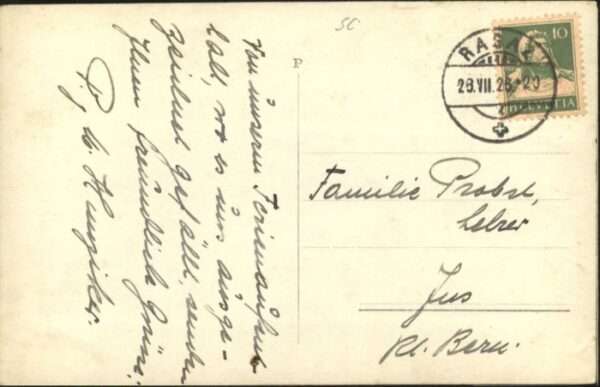 Von unserm Ferienaufent
halt, wo es uns ausge-
zeichnet gefällt, senden
Ihnen freundliche Grüsse.
SC
P
RAGAZ
26.VII.26.-20
10
HELVETIA
Familie Probst,
Lehrer
Jns
Kt. Bern.